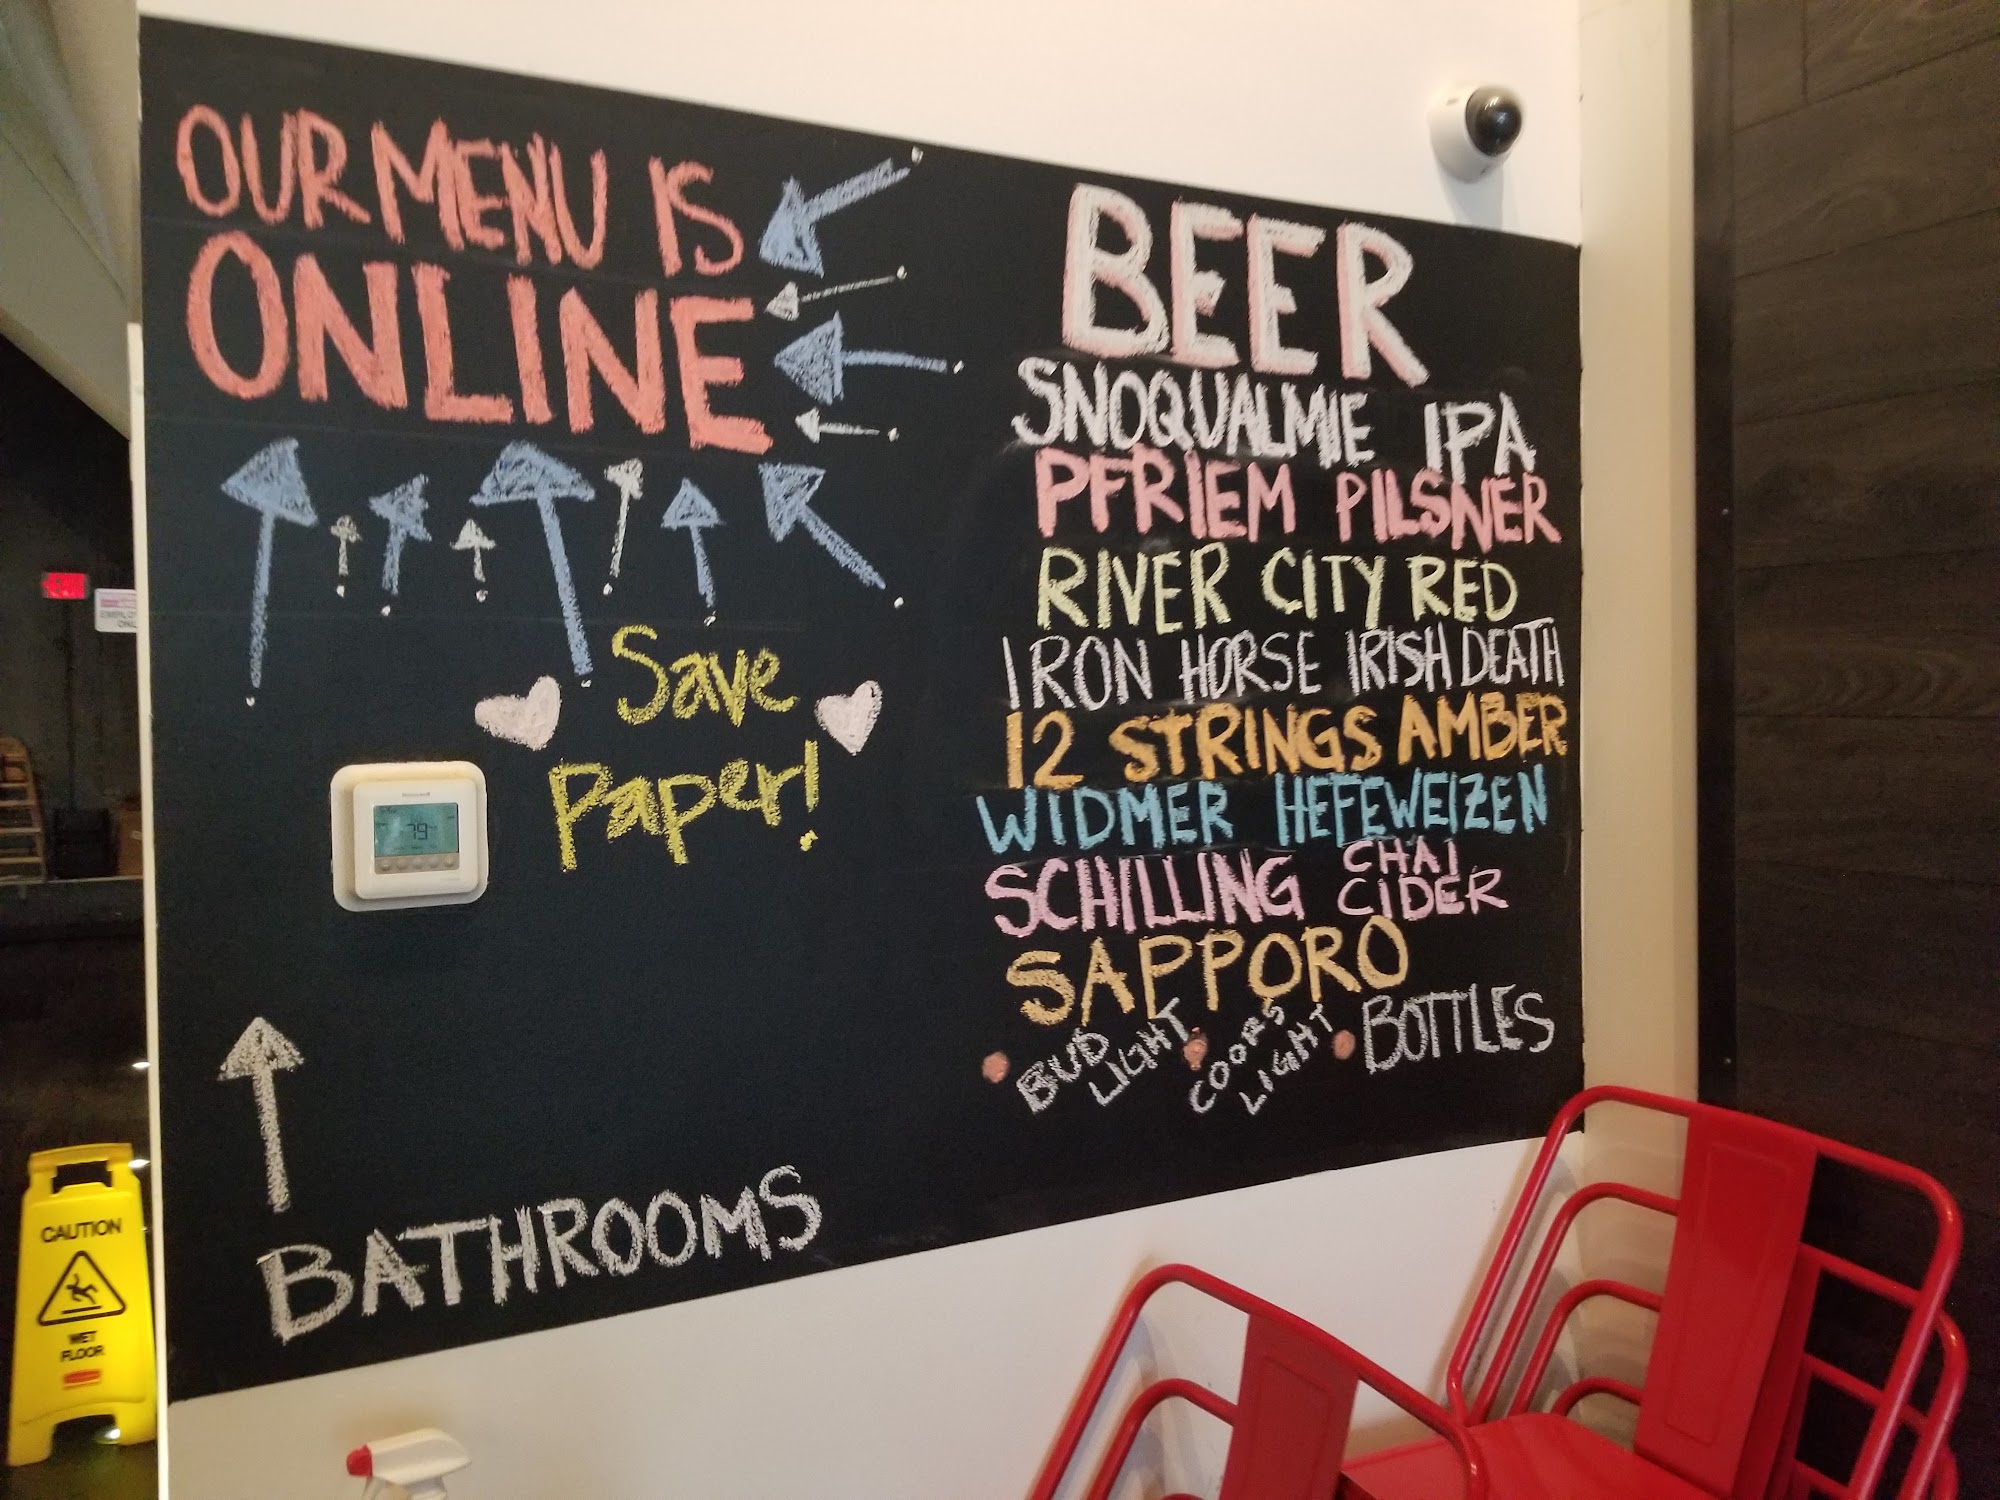 OUR MENU IS
ONLINE
Save
Paper!
Honeywell
79
BATHROOMS
BEER
SNOQUALMIE IPA
PFRIEM PILSNER
RIVER CITY RED
IRON HORSE IRISH DEATH
12 STRINGS AMBER
WIDMER HEFEWEIZEN
SCHILLING CHAI
CIDER
SAPPORO
BUD
LIGHT
COORS
LIGHT
BOTTLES
CAUTION
WET
FLOOR